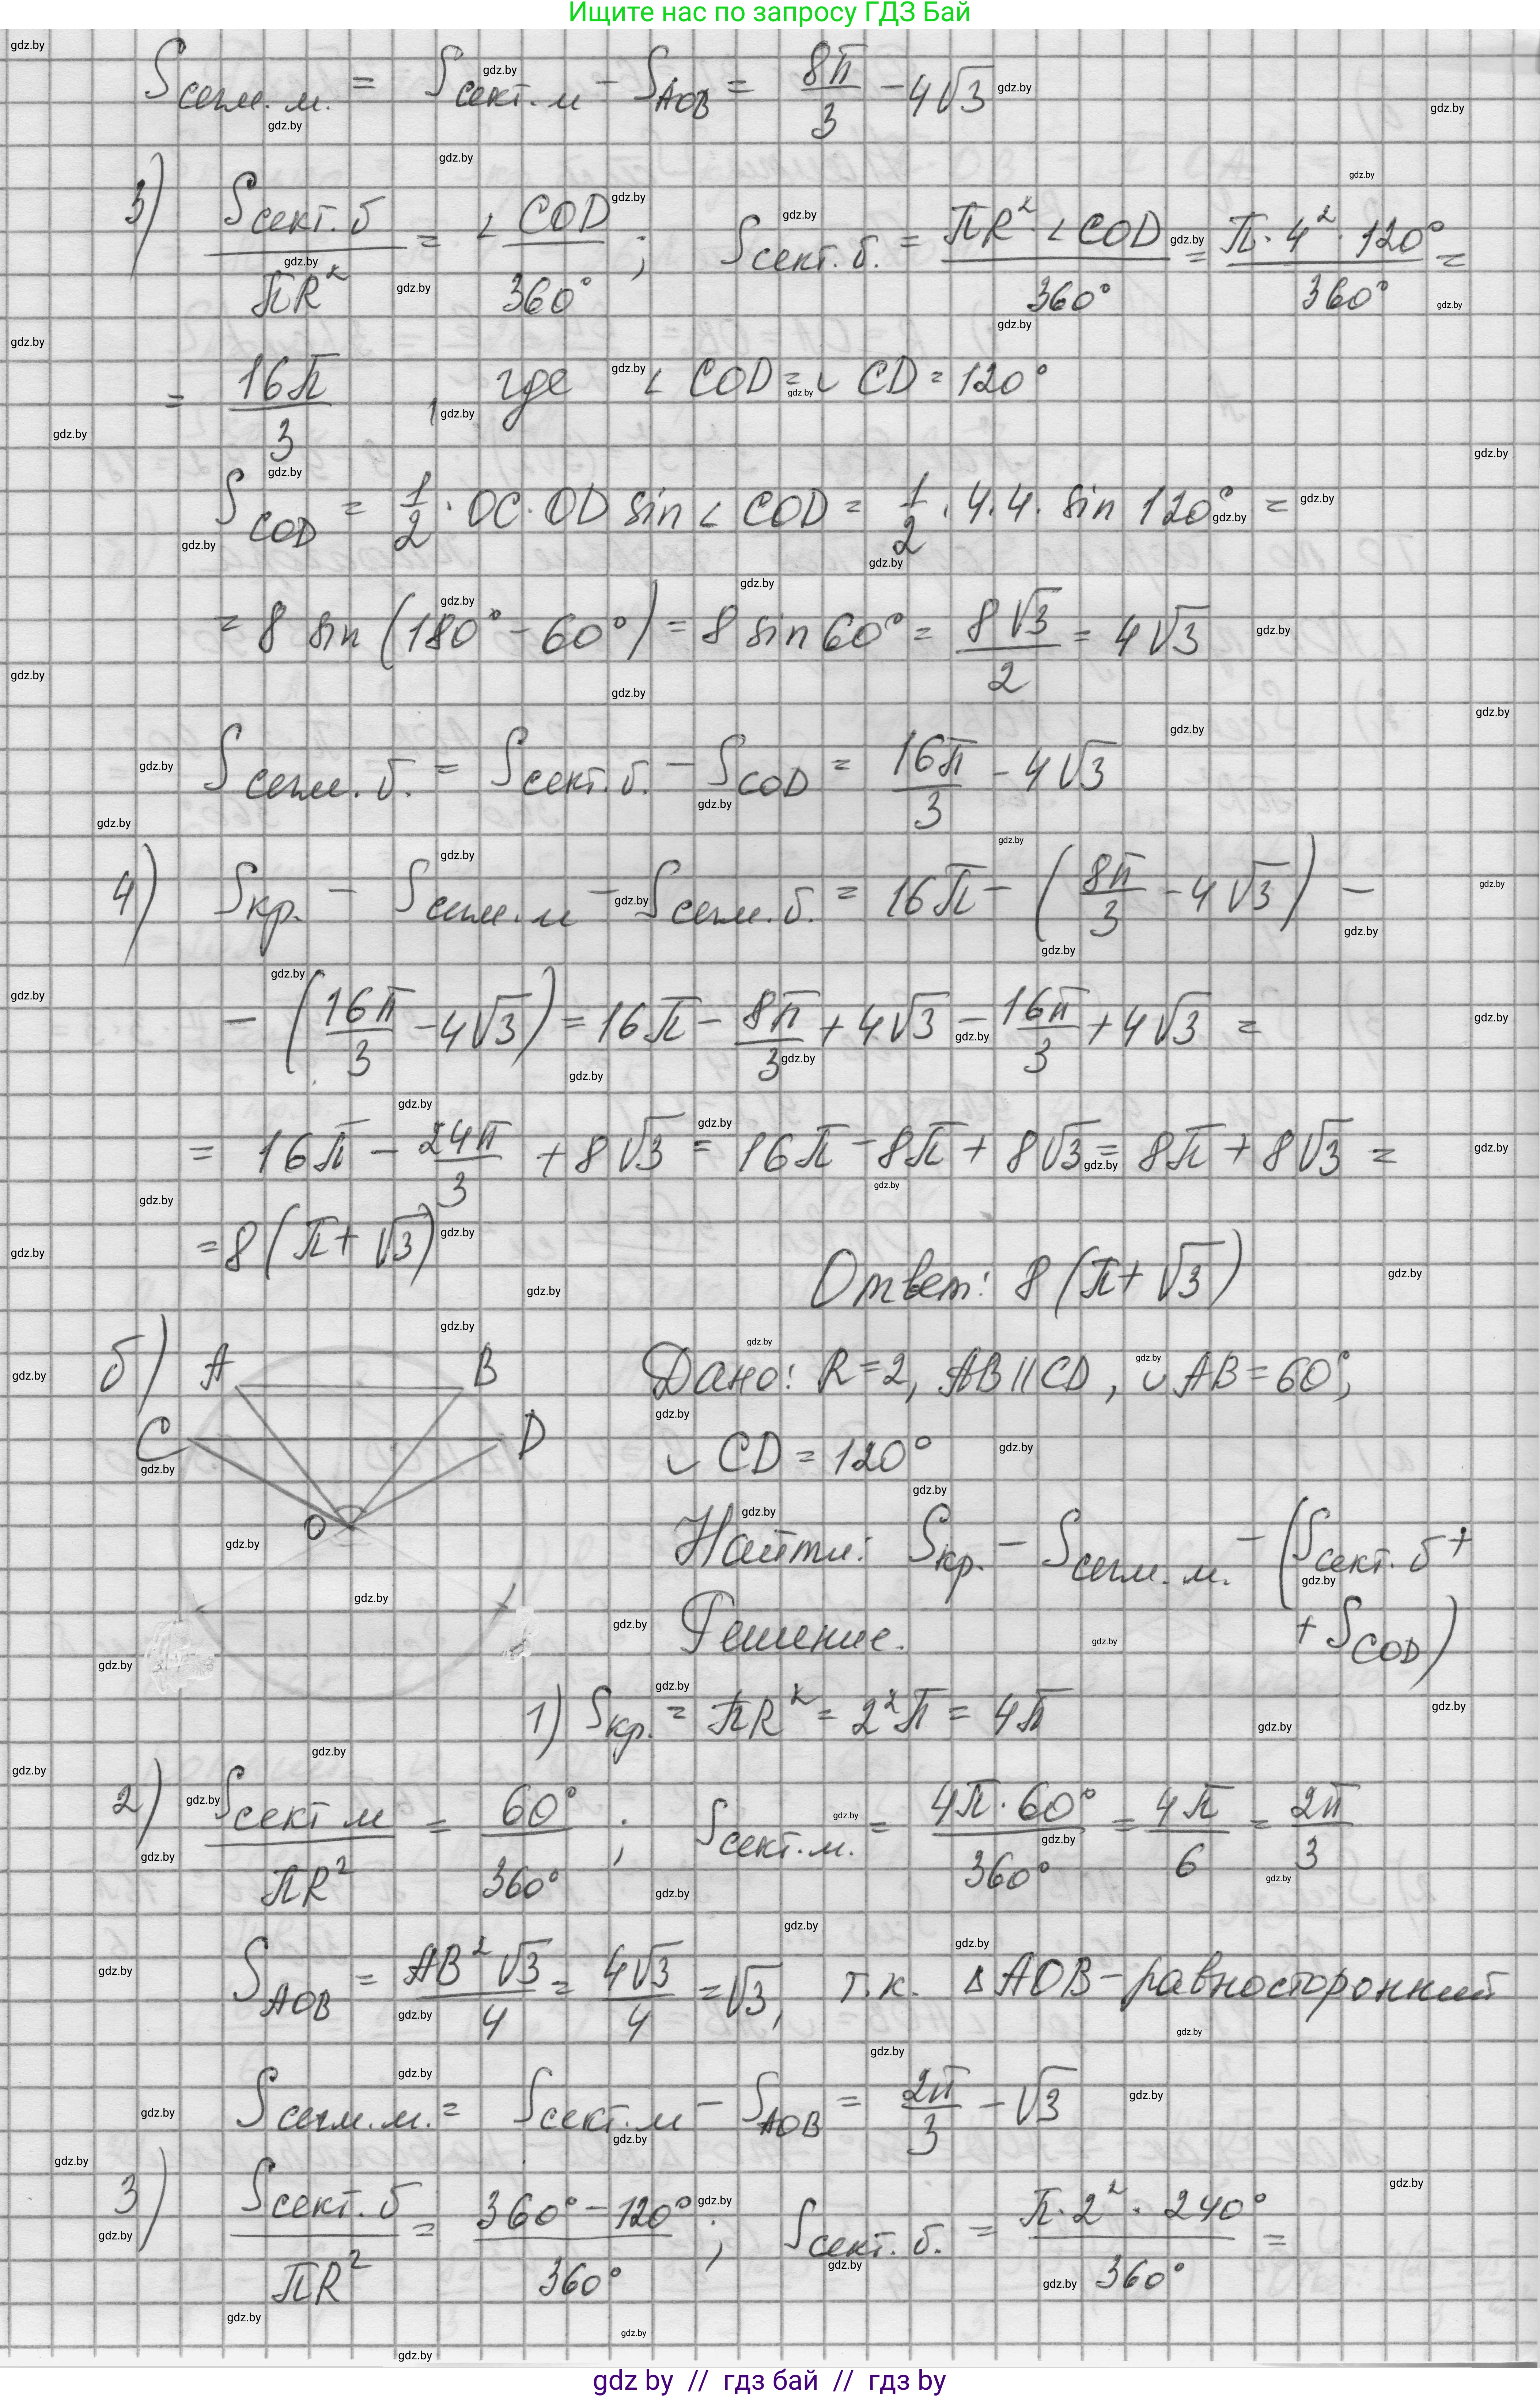 Ищите нас по запросу ГДЗ Бай
S сегм. м. = S сект. м − S AOB = 8π/3 − 4√3
3) S сект. б / πR² = ∠COD / 360° ; S сект. б. = πR² · ∠COD / 360° = π · 4² · 120° / 360° =
= 16π/3 , где ∠COD = ◡CD = 120°
S COD = 1/2 · OC · OD sin ∠COD = 1/2 · 4 · 4 · sin 120° =
= 8 sin (180° − 60°) = 8 sin 60° = 8√3/2 = 4√3
S сегм. б. = S сект. б. − S COD = 16π/3 − 4√3
4) S кр. − S сегм. м − S сегм. б. = 16π − (8π/3 − 4√3) −
− (16π/3 − 4√3) = 16π − 8π/3 + 4√3 − 16π/3 + 4√3 =
= 16π − 24π/3 + 8√3 = 16π − 8π + 8√3 = 8π + 8√3 =
= 8(π + √3)
Ответ: 8(π + √3)
б) A B C D O
Дано: R = 2, AB || CD, ◡AB = 60°,
◡CD = 120°
Найти: S кр. − S сегм. м. − (S сект. б +
+ S COD)
Решение.
1) S кр. = πR² = 2²π = 4π
2) S сект м / πR² = 60° / 360° ; S сект. м. = 4π · 60° / 360° = 4π/6 = 2π/3
S AOB = AB²√3/4 = 4√3/4 = √3, т.к. △AOB − равносторонний
S сегм. м. = S сект. м − S AOB = 2π/3 − √3
3) S сект. б / πR² = 360° − 120° / 360° ; S сект. б. = π · 2² · 240° / 360° =
gdz by // гдз бай // гдз by